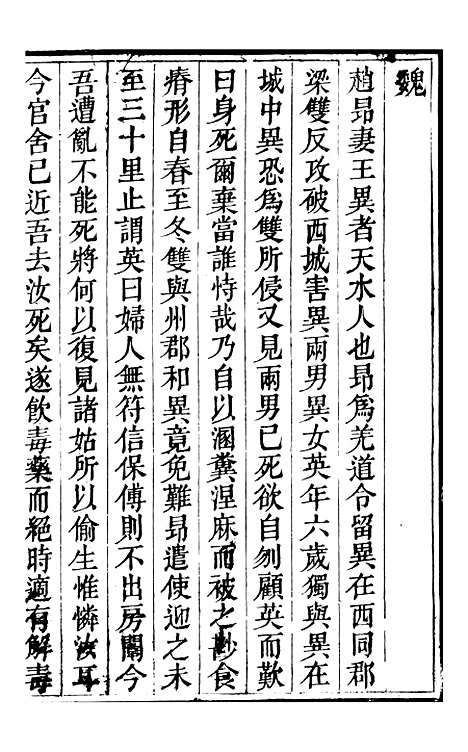 魏
趙昂妻王異者天水人也昂爲羌道令留異在西同郡
梁雙反攻破西城害異兩男異女英年六歲獨與異在
城中異恐爲雙所侵又見兩男已死欲自刎顧英而歎
曰身死爾棄當誰恃哉乃自以溷糞涅麻而被之尠食
瘠形自春至冬雙與州郡和異竟免難昂遣使迎之未
至三十里止謂英曰婦人無符信保傅則不出房闈今
吾遭亂不能死將何以復見諸姑所以偷生惟憐汝耳
今官舍已近吾去汝死矣遂飲毒藥而絕時適有解毒